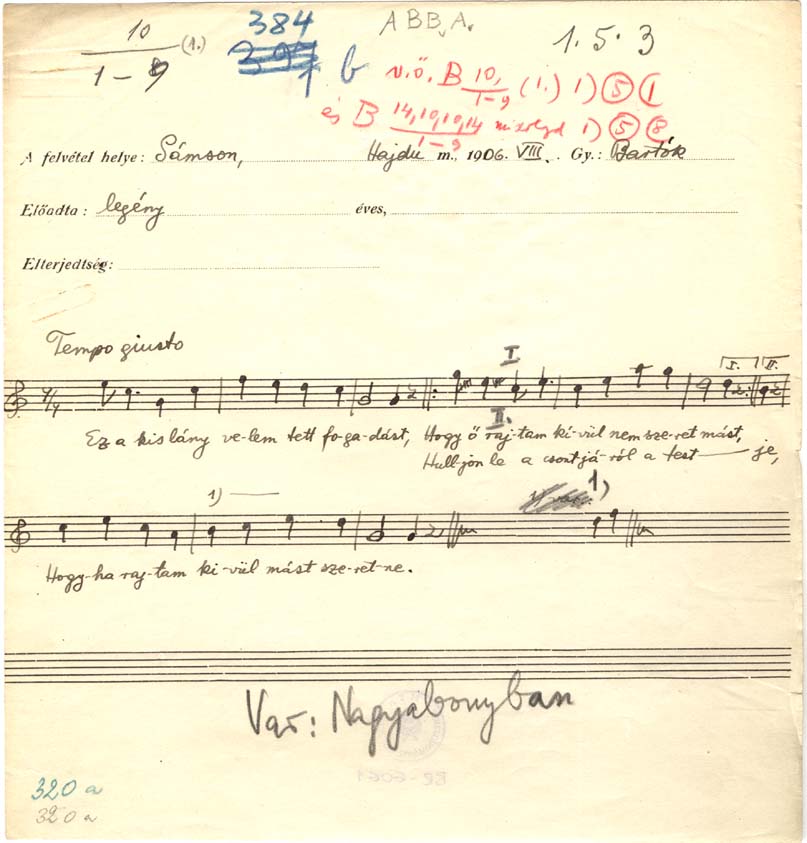 10
1-9
(1.)
384
b
A B B, A.
1. 5. 3
v.ö. B 10, 1-9 (1.) 1) 5 1
és B 14,10,10,14 1-9 mixolyd 1) 5 8
A felvétel helye: Sámson, Hajdu m., 1906. VIII. Gy.: Bartók
Előadta: legény éves,
Elterjedtség:
Tempo giusto
I I. II.
4/4
II.
Ez a kislány ve-lem tett fo-ga-dást, Hogy ő raj-tam ki-vül nem sze-ret mást,
Hull-jon le a csont-já-ról a test — je,
1) 1)
Hogy-ha raj-tam ki-vül mást sze-ret-ne.
Var: Nagyabonyban
320 a
320 a